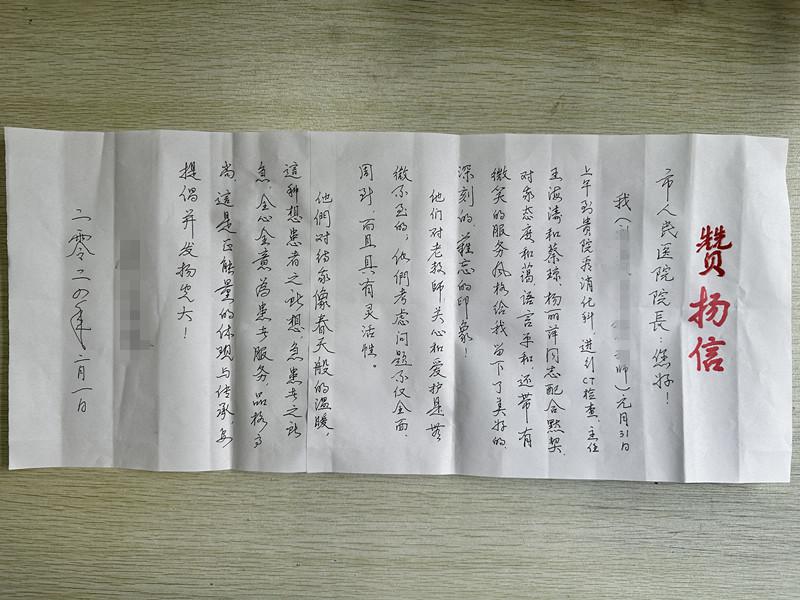 赞扬信
市人民医院院長：您好！
我（ 师）元月31日
上午到贵院看消化科，进行CT检查，主任
王海涛和蔡琼、杨丽萍同志配合默契，
对象态度和蔼，语言柔和，还带有
微笑的服务风格给我留下了美好的，
深刻的難忘的印象！
他们对老教師关心和爱护是无
微不至的，他們考虑问题不仅全面、
周到，而且具有灵活性。
他們对待象像春天般的温暖，
这种想患者之所想，急患者之所
急，全心全意為患者服务，品格高
尚，这是正能量的体现与传承，要
提倡并发扬光大！
二零二四年二月一日